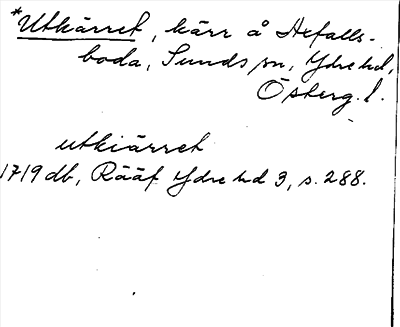 *Utkärret, kärr å Axfalls-
boda, Sunds sn, Ydre hd,
Österg. l.
utkiärret
1719 db, Rääf Ydre hd 3, s. 288.